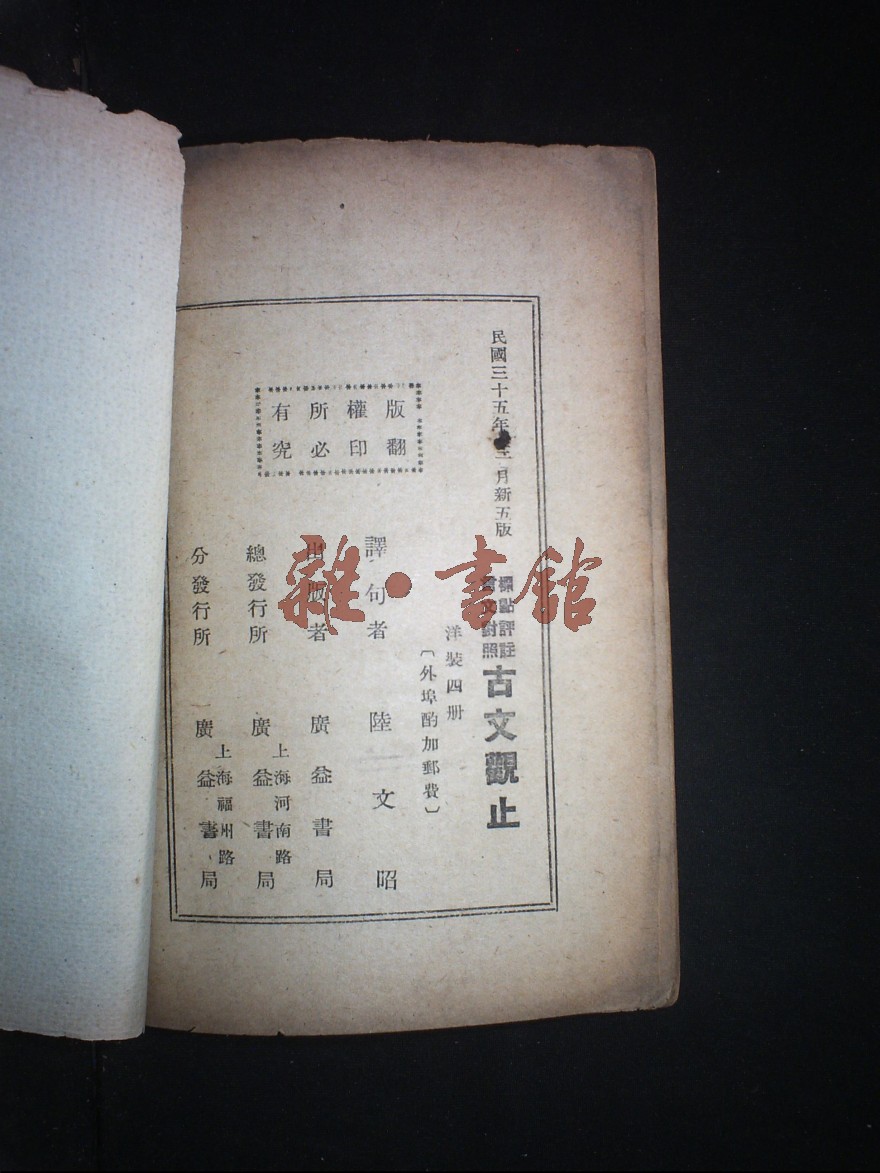 民國三十五年三月新五版
標點評註
言文對照
古文觀止
洋裝四册
〔外埠酌加郵費〕
版權所有
翻印必究
譯句者 陸文昭
出版者 廣益書局
總發行所 上海河南路 廣益書局
分發行所 上海福州路 廣益書局
雜·書館